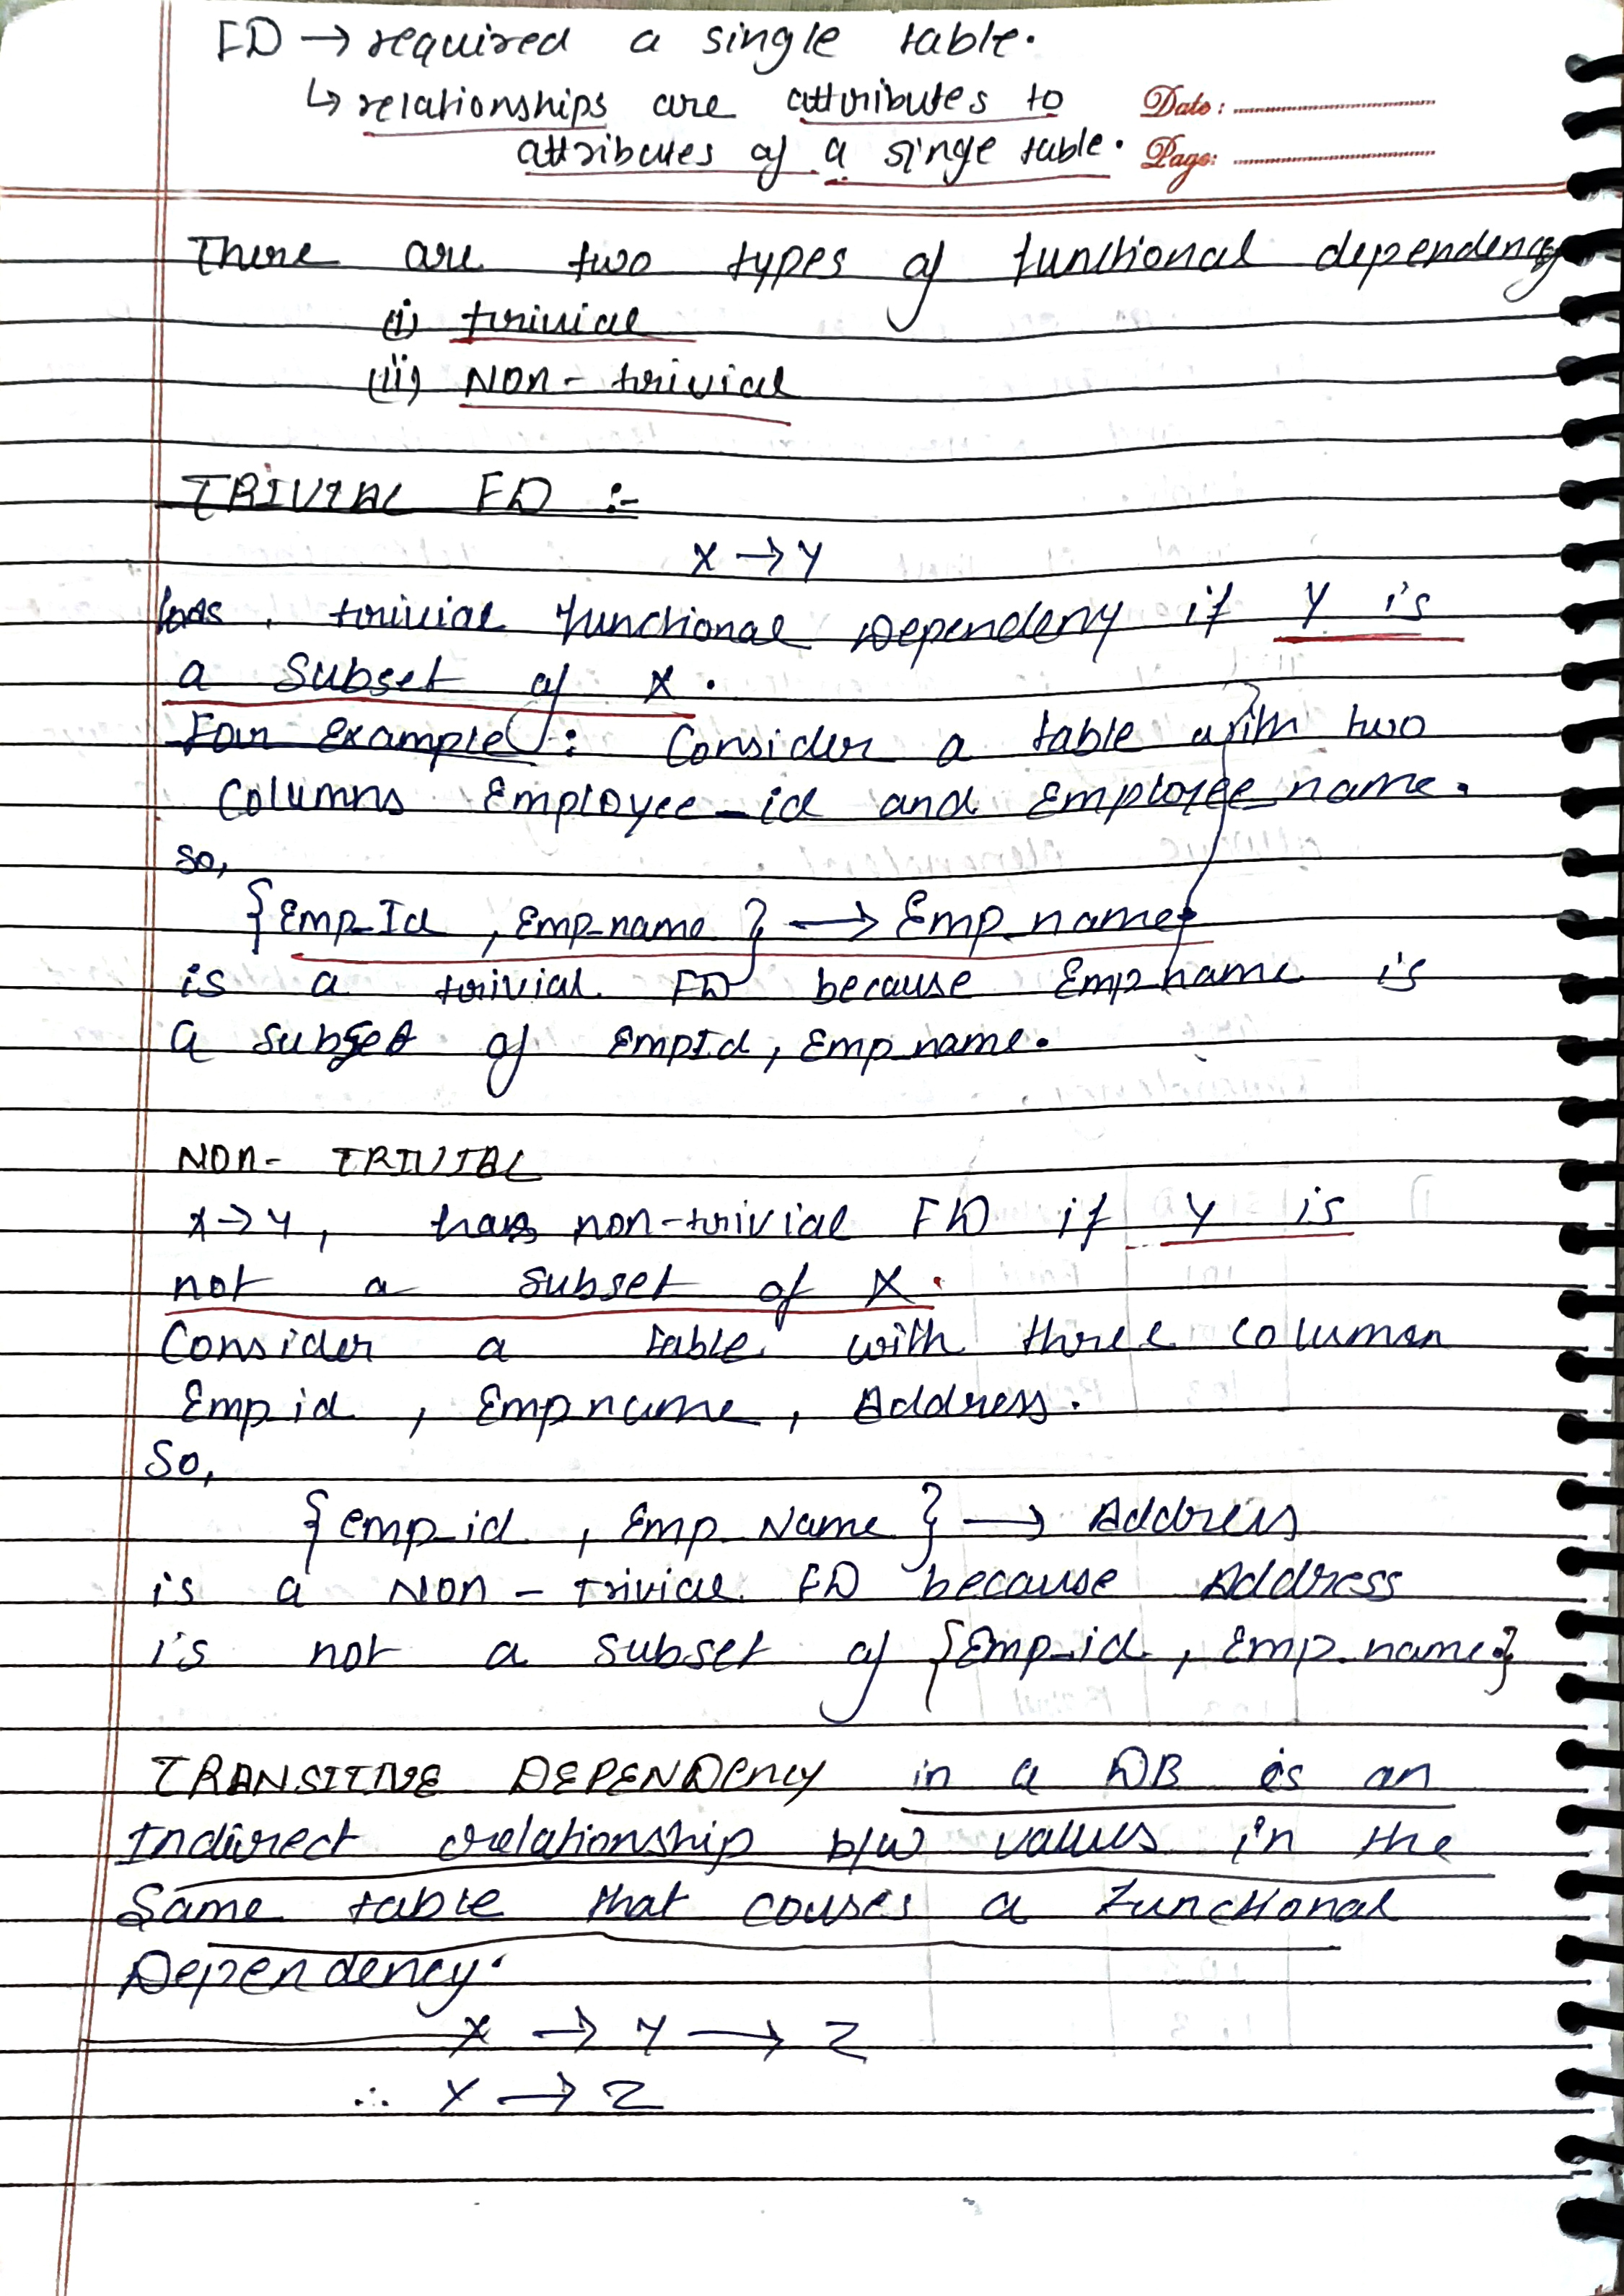 FD → required a single table.
↳ relationships are attributes to
attributes of a singe table.
Date:
Page:
There are two types of functional dependency
(i) trivial
(ii) Non-trivial
TRIVIAL FD :-
X → Y
has trivial functional Dependeny if Y is
a subset of X.
For Example: Consider a table with two
Columns Employee_id and Employee_name.
so,
{Emp_Id, Emp_name} → Emp_name
is a trivial FD because Emp_name is
a subset of EmpId, Emp_name.
NON- TRIVIAL
X → Y, has non-trivial FD if Y is
not a subset of X.
Consider a table with three columan
Emp_id, Emp_name, Address.
So,
{emp_id, Emp_Name} → Address
is a Non-Trivial FD because Address
is not a subset of {Emp_id, Emp_name}
TRANSITIVE DEPENDENCY in a DB is an
Indirect relationship b/w values in the
Same table that couses a Functional
Dependency.
X → Y → Z
∴ X → Z